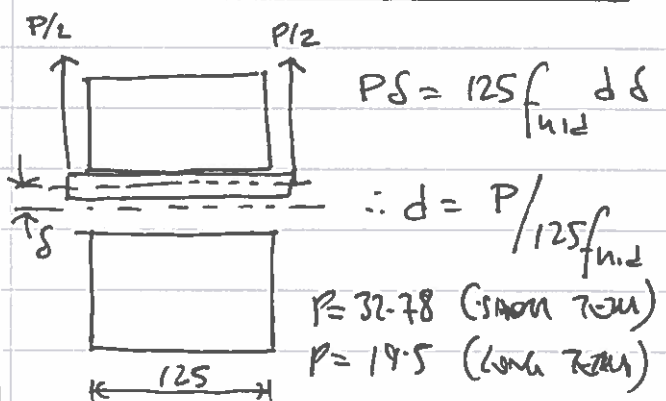 P/2 P/2
Pδ = 125 f_h,d d δ
∴ d = P/125 f_h,d
δ
P= 32.78 (SHORT TERM)
P= 19.5 (LONG TERM)
125